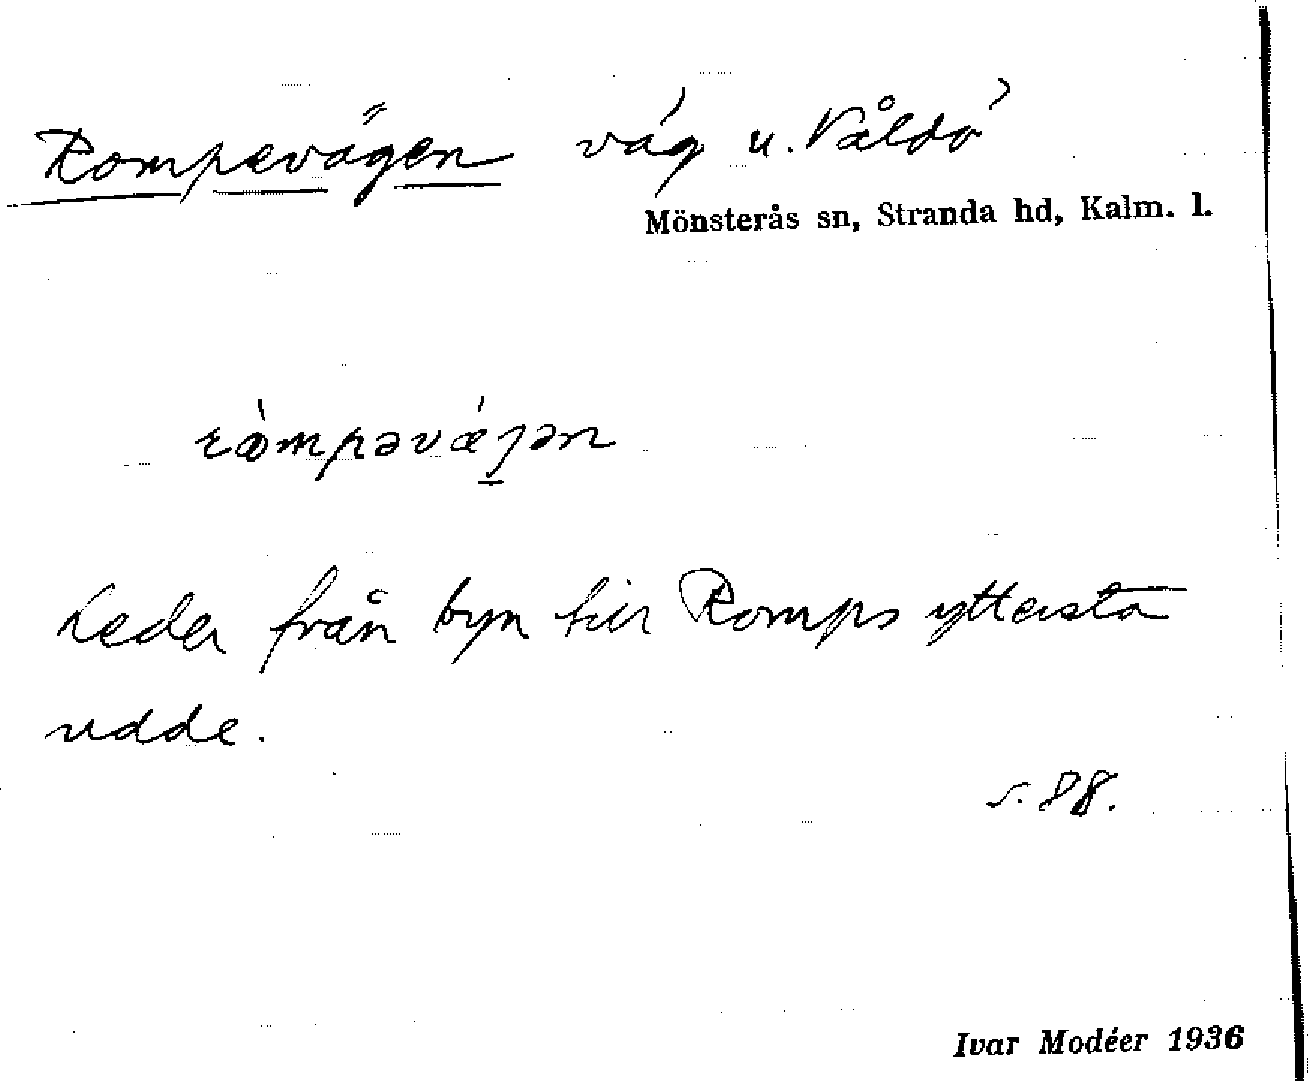 Rompevägen väg u. Våldö
Mönsterås sn, Stranda hd, Kalm. l.
ròmpəvǽjən
Leder från byn till Romps yttersta
udde.
s. 88.
Ivar Modéer 1936